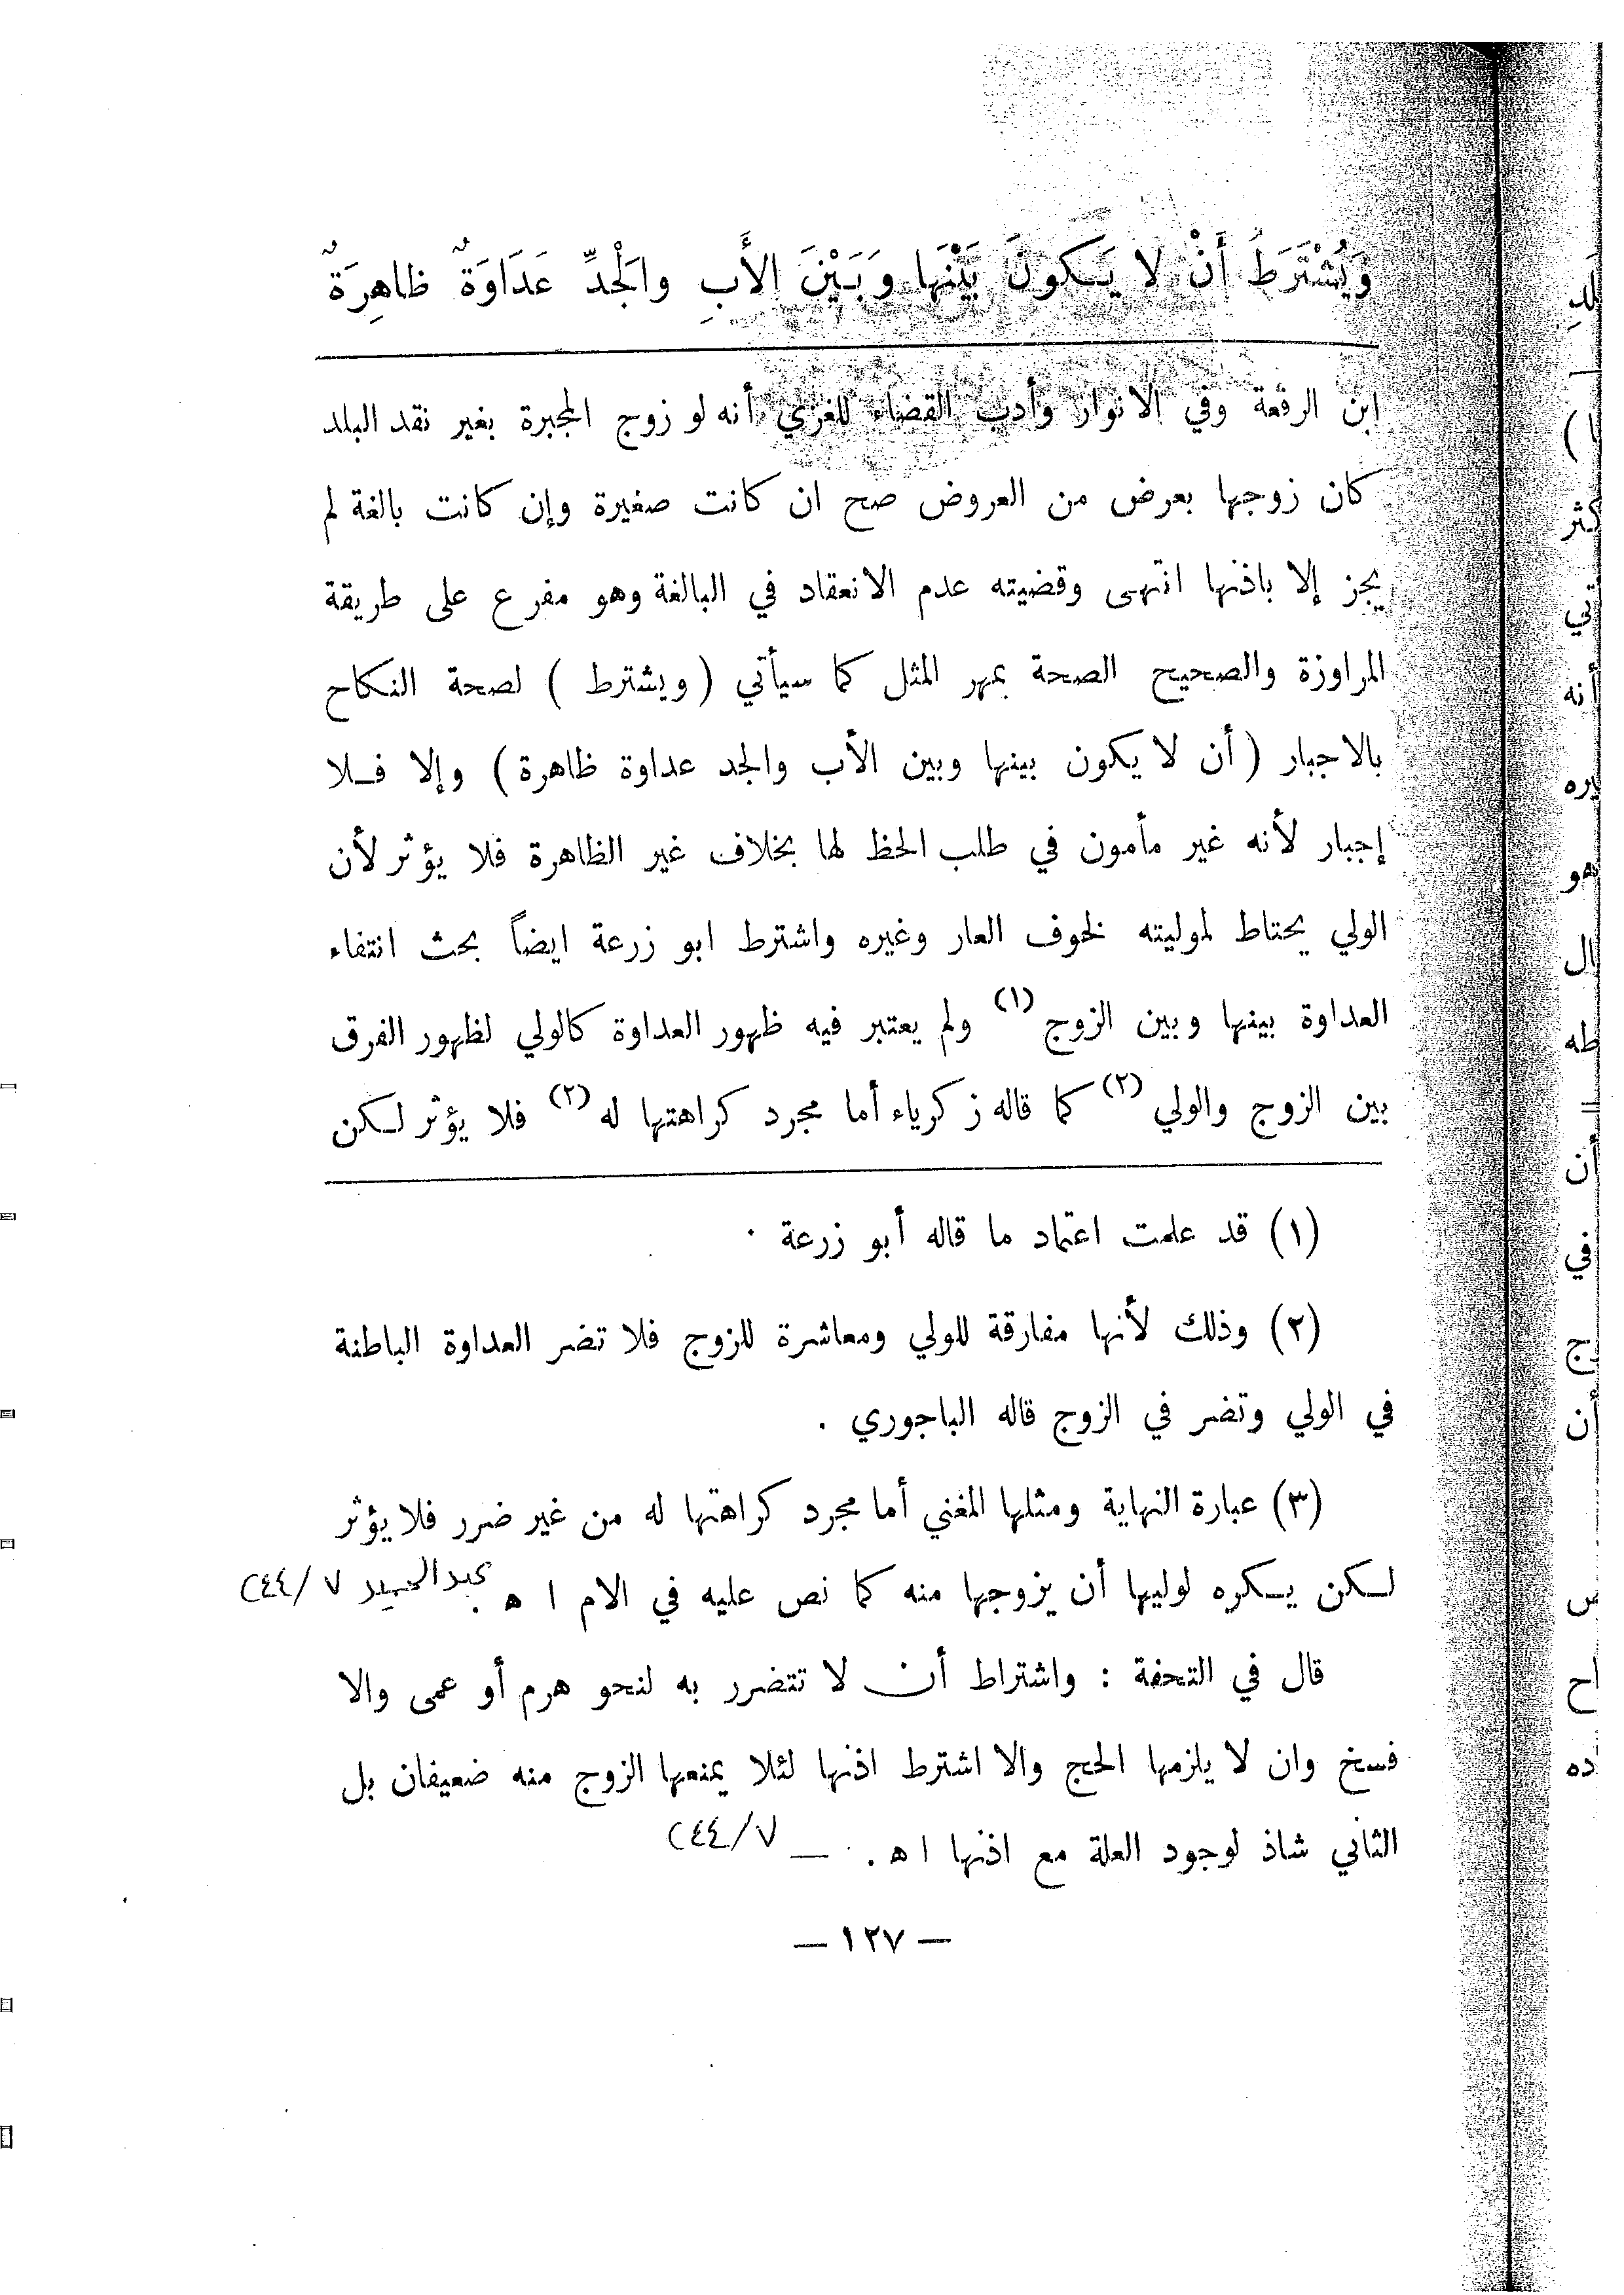 وَيُشْتَرَطُ أَنْ لا يَكونَ بَيْنَها وَبَيْنَ الأَبِ والْجَدِّ عَدَاوَةٌ ظاهِرَةٌ
ابن الرفعة وفي الانوار وأدب القضاء للغزي أنه لو زوج المجبرة بغير نقد البلد
كان زوجها بعرض من العروض صح ان كانت صغيرة وإن كانت بالغة لم
يجز إلا باذنها انتهى وقضيته عدم الانعقاد في البالغة وهو مفرع على طريقة
المراوزة والصحيح الصحة بمهر المثل كما سيأتي ( ويشترط ) لصحة النكاح
بالاجبار ( أن لا يكون بينها وبين الأب والجد عداوة ظاهرة ) وإلا فلا
إجبار لأنه غير مأمون في طلب الحظ لها بخلاف غير الظاهرة فلا يؤثر لأن
الولي يحتاط لموليته لخوف العار وغيره واشترط ابو زرعة ايضاً بحث انتفاء
العداوة بينها وبين الزوج (١) ولم يعتبر فيه ظهور العداوة كالولي لظهور الفرق
بين الزوج والولي (٢) كما قاله زكرياء أما مجرد كراهتها له (٢) فلا يؤثر لكن
(١) قد علمت اعتماد ما قاله أبو زرعة .
(٢) وذلك لأنها مفارقة للولي ومعاشرة للزوج فلا تضر العداوة الباطنة
في الولي وتضر في الزوج قاله الباجوري .
(٣) عبارة النهاية ومثلها المغني أما مجرد كراهتها له من غير ضرر فلا يؤثر
لكن يكره لوليها أن يزوجها منه كما نص عليه في الام ا ه . عبد الحميد ٧/٢٤٤
قال في التحفة : واشتراط أن لا تتضرر به لنحو هرم أو عمى والا
فسخ وان لا يلزمها الحج والا اشترط اذنها لئلا يمنعها الزوج منه ضعيفان بل
الثاني شاذ لوجود العلة مع اذنها ا ه . — ٧/٢٤٤
— ١٢٧ —